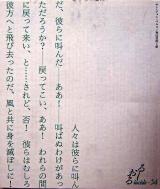 人々は彼らに叫んだ
だ、彼らに叫んだ――ああ！　叫ばぬわけがあっ
ただろうか？――戻ってこい、ああ！　われらの間
に戻って来い、と――されど、否！　彼らはむしろ
彼方へと飛び去ったのだ、風と共に身を滅ぼしに！